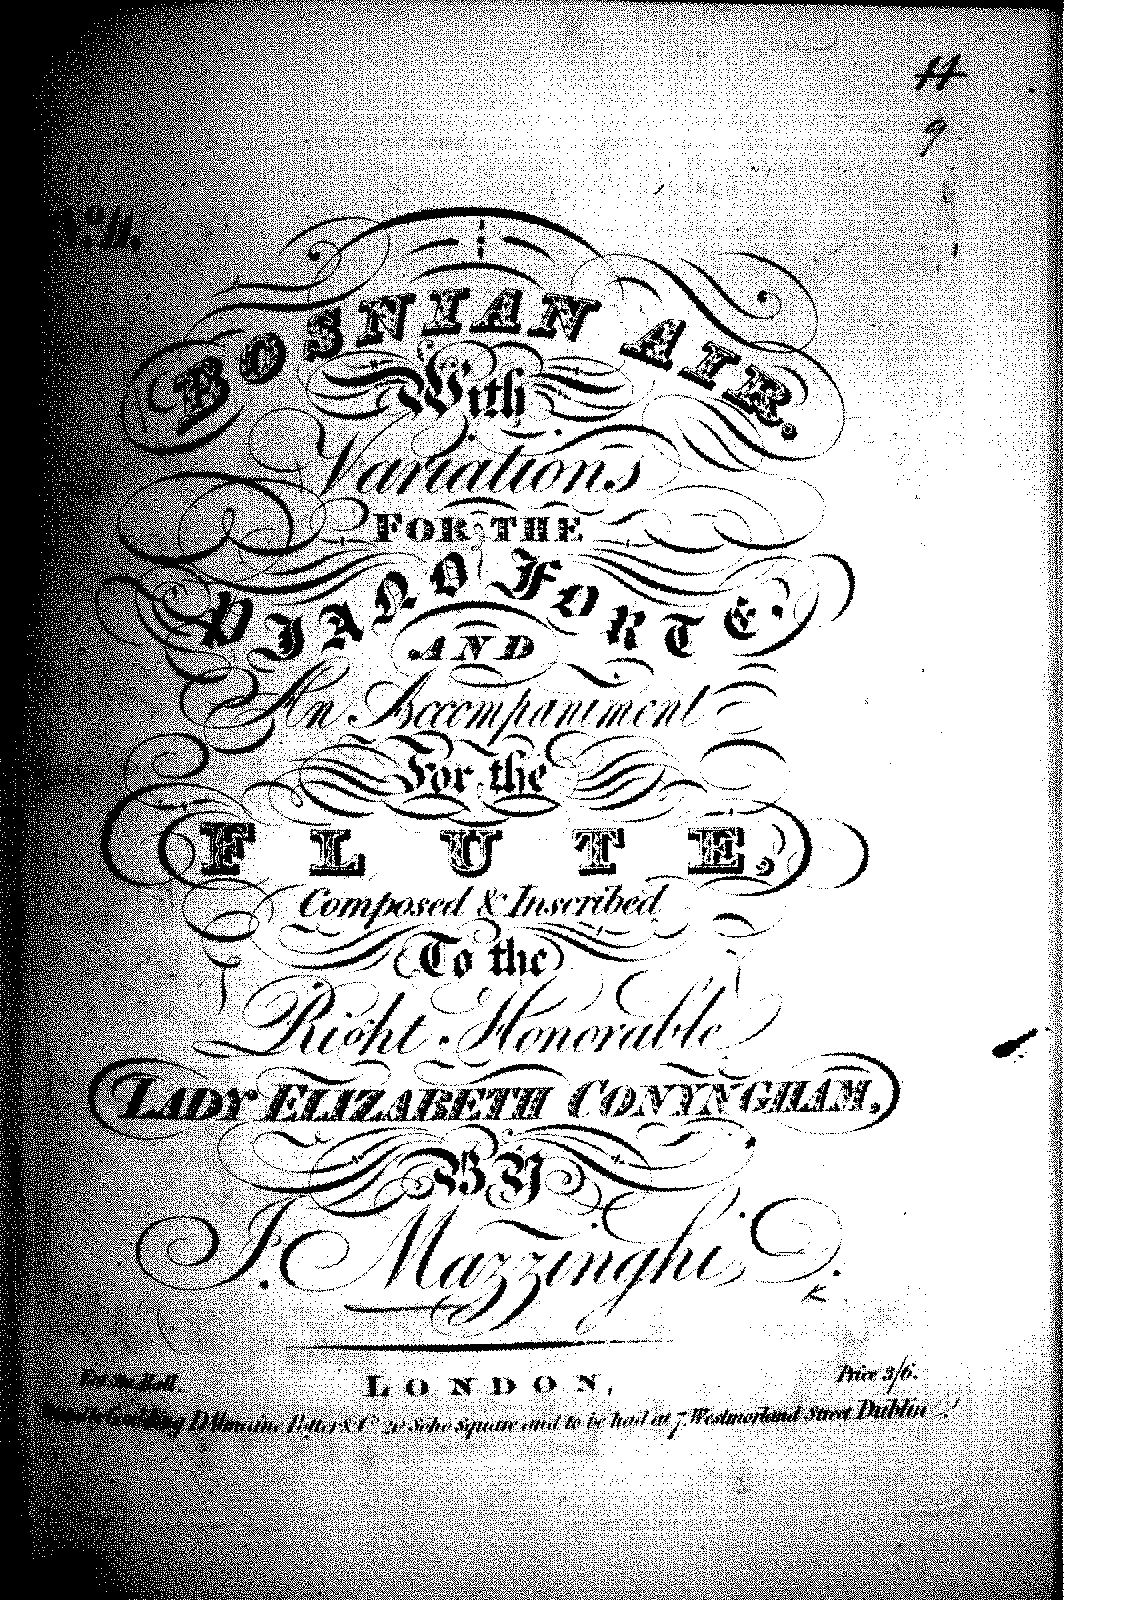 H
9
No. 11.
BOSNIAN AIR.
With
Variations
FOR THE
PIANO FORTE.
AND
An Accompaniment
For the
FLUTE,
Composed & Inscribed
To the
Right Honorable
LADY ELIZABETH CONYNGHAM,
BY
J. Mazzinghi
Ent. Sta. Hall. Price 3/6.
LONDON,
Goulding D'Almaine Potter & Co. 20 Soho Square and to be had at 7 Westmorland Street Dublin